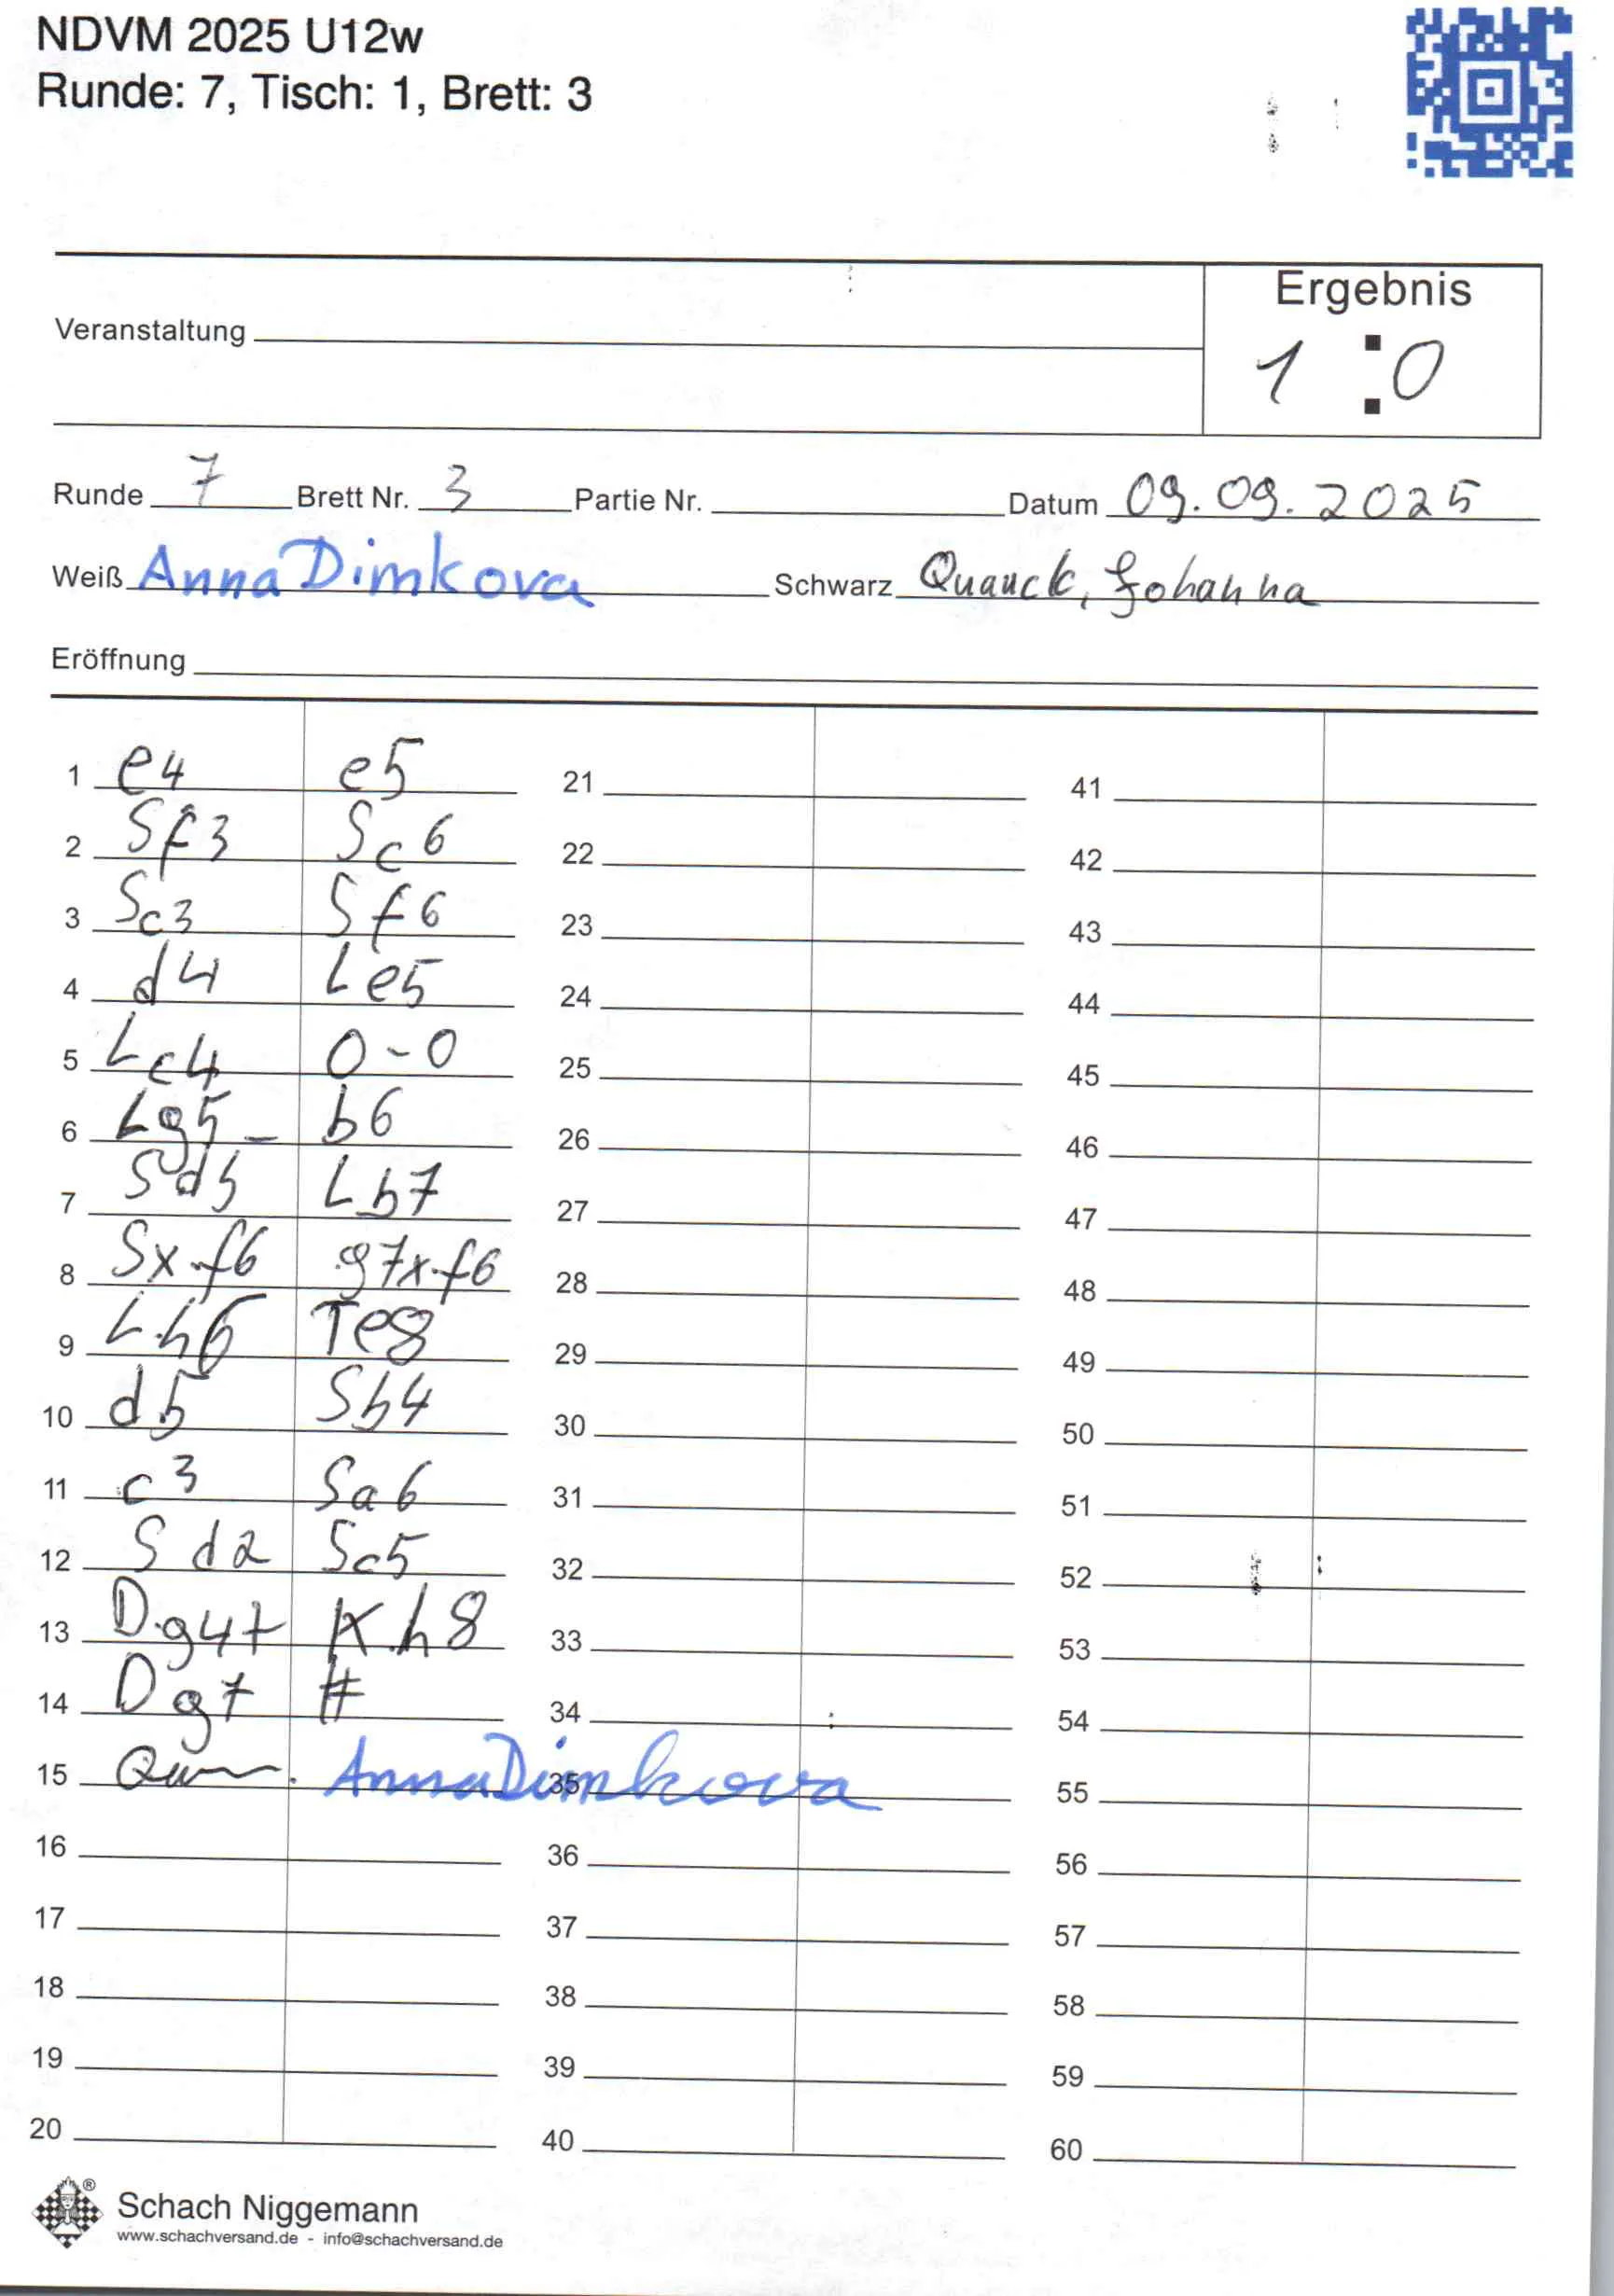 NDVM 2025 U12w
Runde: 7, Tisch: 1, Brett: 3
Ergebnis
Veranstaltung
1 : 0
Runde 7 Brett Nr. 3 Partie Nr. Datum 09.09.2025
Weiß Anna Dimkova Schwarz Quauck, Johanna
Eröffnung
1 e4 e5 21 41
2 Sf3 Sc6 22 42
3 Sc3 Sf6 23 43
4 d4 Le5 24 44
5 Lc4 0-0 25 45
6 Lg5 b6 26 46
7 Sd5 Lb7 27 47
8 Sxf6 g7xf6 28 48
9 Lh6 Te8 29 49
10 d5 Sb4 30 50
11 c3 Sa6 31 51
12 Sd2 Sc5 32 52
13 Dg4+ Kh8 33 53
14 Dg7 # 34 54
15 Anna Dimkova 35 55
16 36 56
17 37 57
18 38 58
19 39 59
20 40 60
®
Schach Niggemann
www.schachversand.de - info@schachversand.de